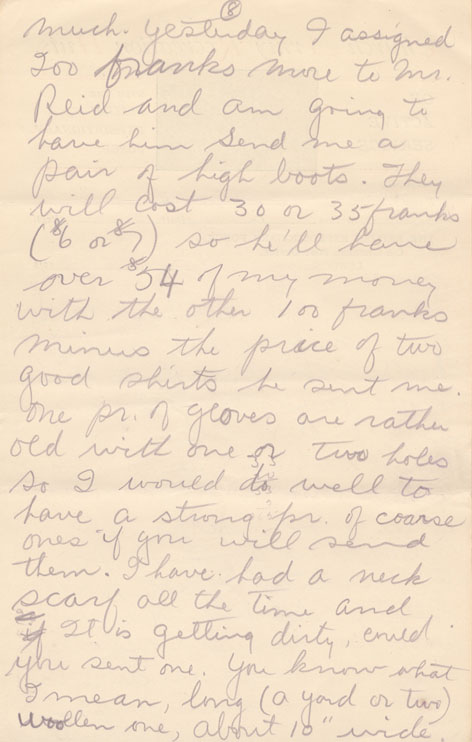 8
much. Yesterday I assigned
200 franks more to Mr.
Reid and am going to
have him send me a
pair of high boots. They
will cost 30 or 35 franks
($6 or $7) so he'll have
over $54 of my money
with the other 100 franks
minus the price of two
good shirts he sent me.
One pr. of gloves are rather
old with one or two holes
so I would do well to
have a strong pr. of coarse
ones if you will send
them. I have had a neck
scarf all the time and
if It is getting dirty, could
you sent one. You know what
I mean, long (a yard or two)
woollen one, about 10" wide.